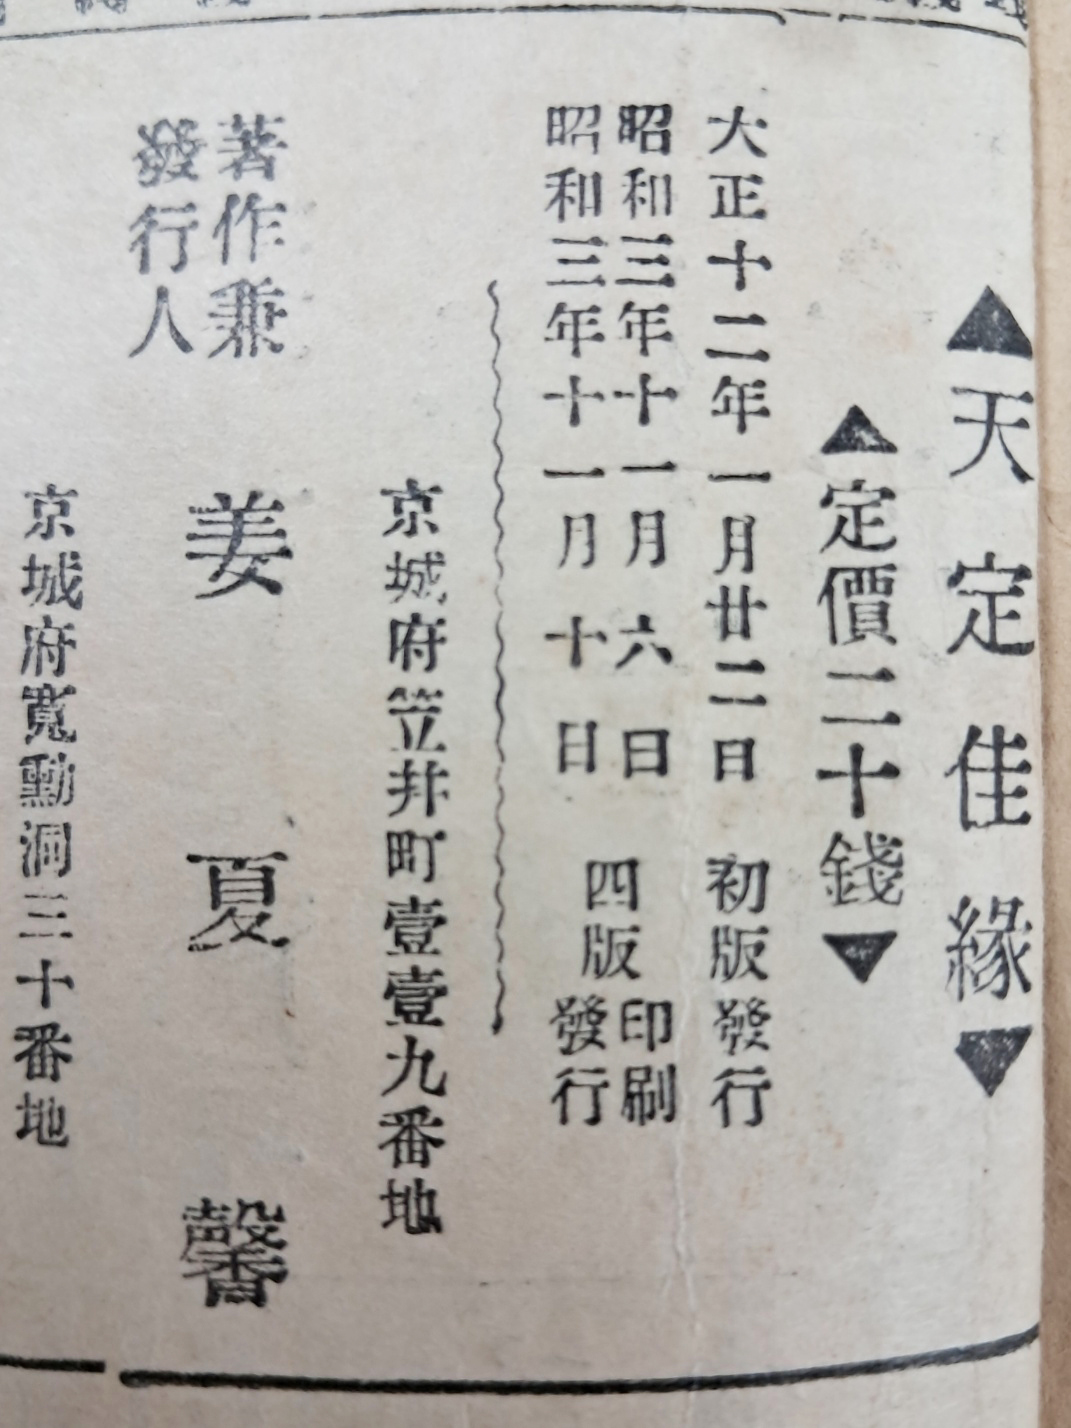 ▲天定佳緣▼
▲定價二十錢▼
大正十二年一月廿二日初版發行
昭和三年十一月六日四版印刷
昭和三年十一月十日四版發行
京城府笠井町壹壹九番地
著作兼
發行人
姜夏馨
京城府寬勳洞三十番地